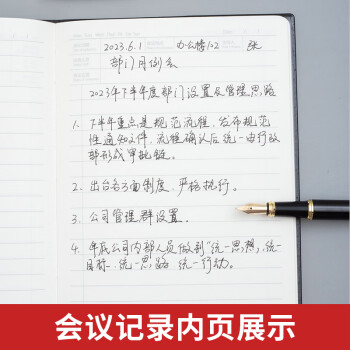 2023.6.1 办公楼102 张
部门月例会
2023年下半年度部门设置及管理思路
1. 下半年重点是规范流程,发布规范
性通知文件,流程确认后统一由行政
部形成审批链。
2. 出台各方面制度,严格执行。
3. 公司管理群设置。
4. 年底公司内部人员做到“统一思想,统一
目标,统一思路,统一行动。
会议记录内页展示